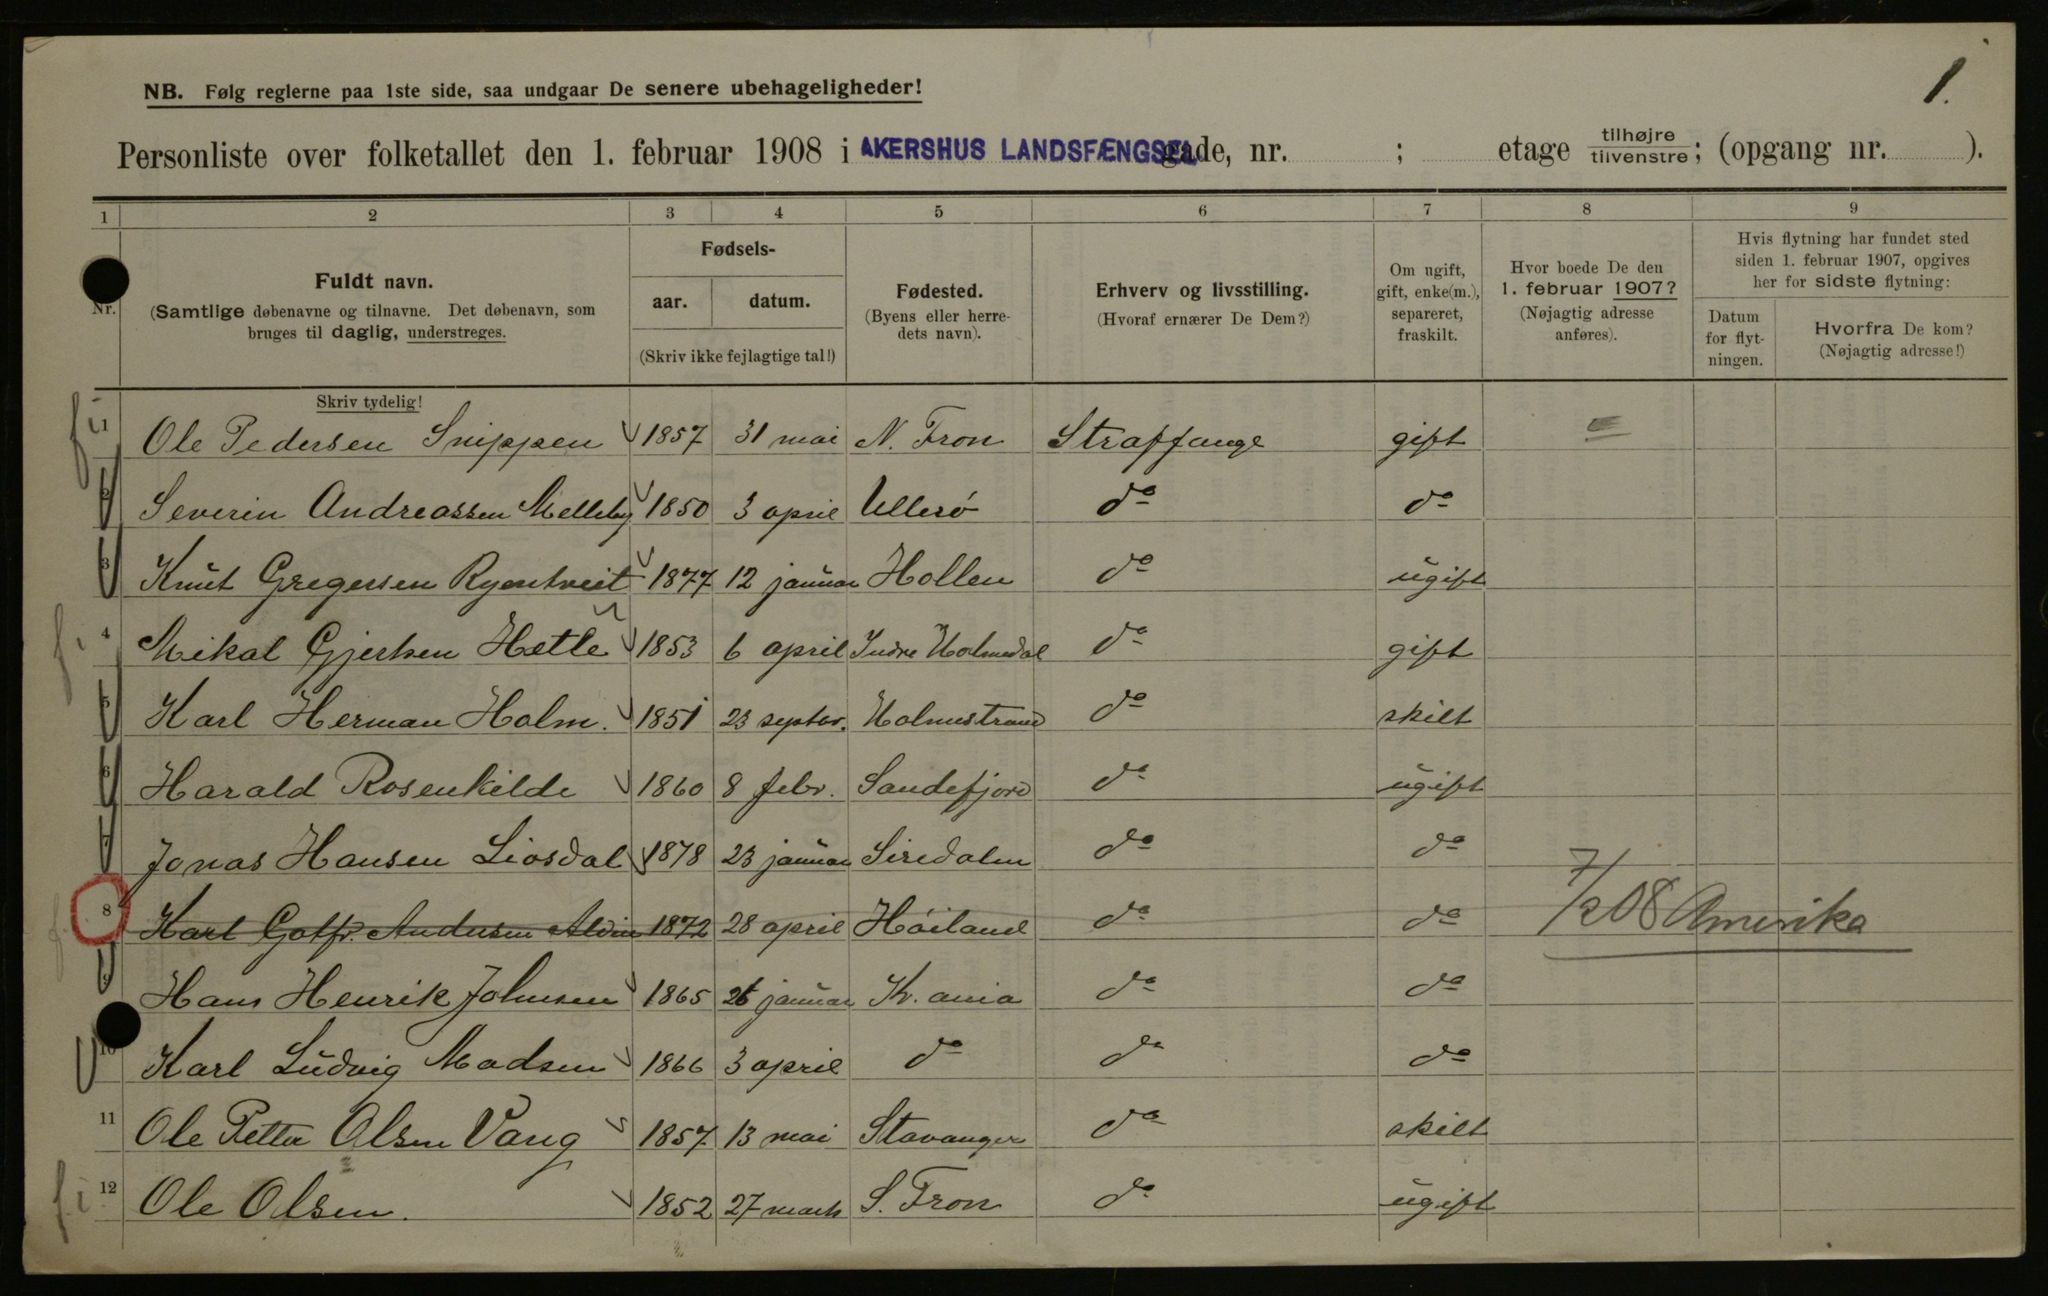 1.
NB. Følg reglerne paa 1ste side, saa undgaar De senere ubehageligheder!
Personliste over folketallet den 1. februar 1908 i AKERSHUS LANDSFÆNGSEL gade, nr. ; etage tilhøjre/tilvenstre; (opgang nr. ).
1 2 3 4 5 6 7 8 9
Nr.
Fuldt navn.
(Samtlige døbenavne og tilnavne. Det døbenavn, som
bruges til daglig, understreges.
Skriv tydelig!
Fødsels-
aar. datum.
(Skriv ikke fejlagtige tal!)
Fødested.
(Byens eller herre-
dets navn).
Erhverv og livsstilling.
(Hvoraf ernærer De Dem?)
Om ugift,
gift, enke(m.),
separeret,
fraskilt.
Hvor boede De den
1. februar 1907?
(Nøjagtig adresse
anføres).
Hvis flytning har fundet sted
siden 1. februar 1907, opgives
her for sidste flytning:
Datum
for flyt-
ningen.
Hvorfra De kom?
(Nøjagtig adresse!)
1 Ole Pedersen Snippen 1857 31 mai N. Fron Straffange gift
2 Severin Andreassen Melleby 1850 3 april Ullerø do do
3 Knut Gregersen 1877 12 januar Hollen do ugift
4 Mikal Gjertsen Hetle 1853 6 april Indre Holmedal do gift
5 Karl Herman Holm. 1851 23 septbr. Holmestrand do skilt
6 Harald Rosenkilde 1860 8 febr. Sandefjord do ugift
7 Jonas Hansen Liosdal 1878 23 januar Siredalen do do
8 Karl Gotfr. Andersen 1872 28 april Høiland do do 7/2 08 Amerika
9 Hans Henrik Johnsen 1865 26 januar Kr.ania do do
10 Karl Ludvig Madsen 1866 3 april do do do
11 Ole Petter Olsen Vang 1857 13 mai Stavanger do skilt
12 Ole Olsen. 1852 27 marts S. Fron do ugift